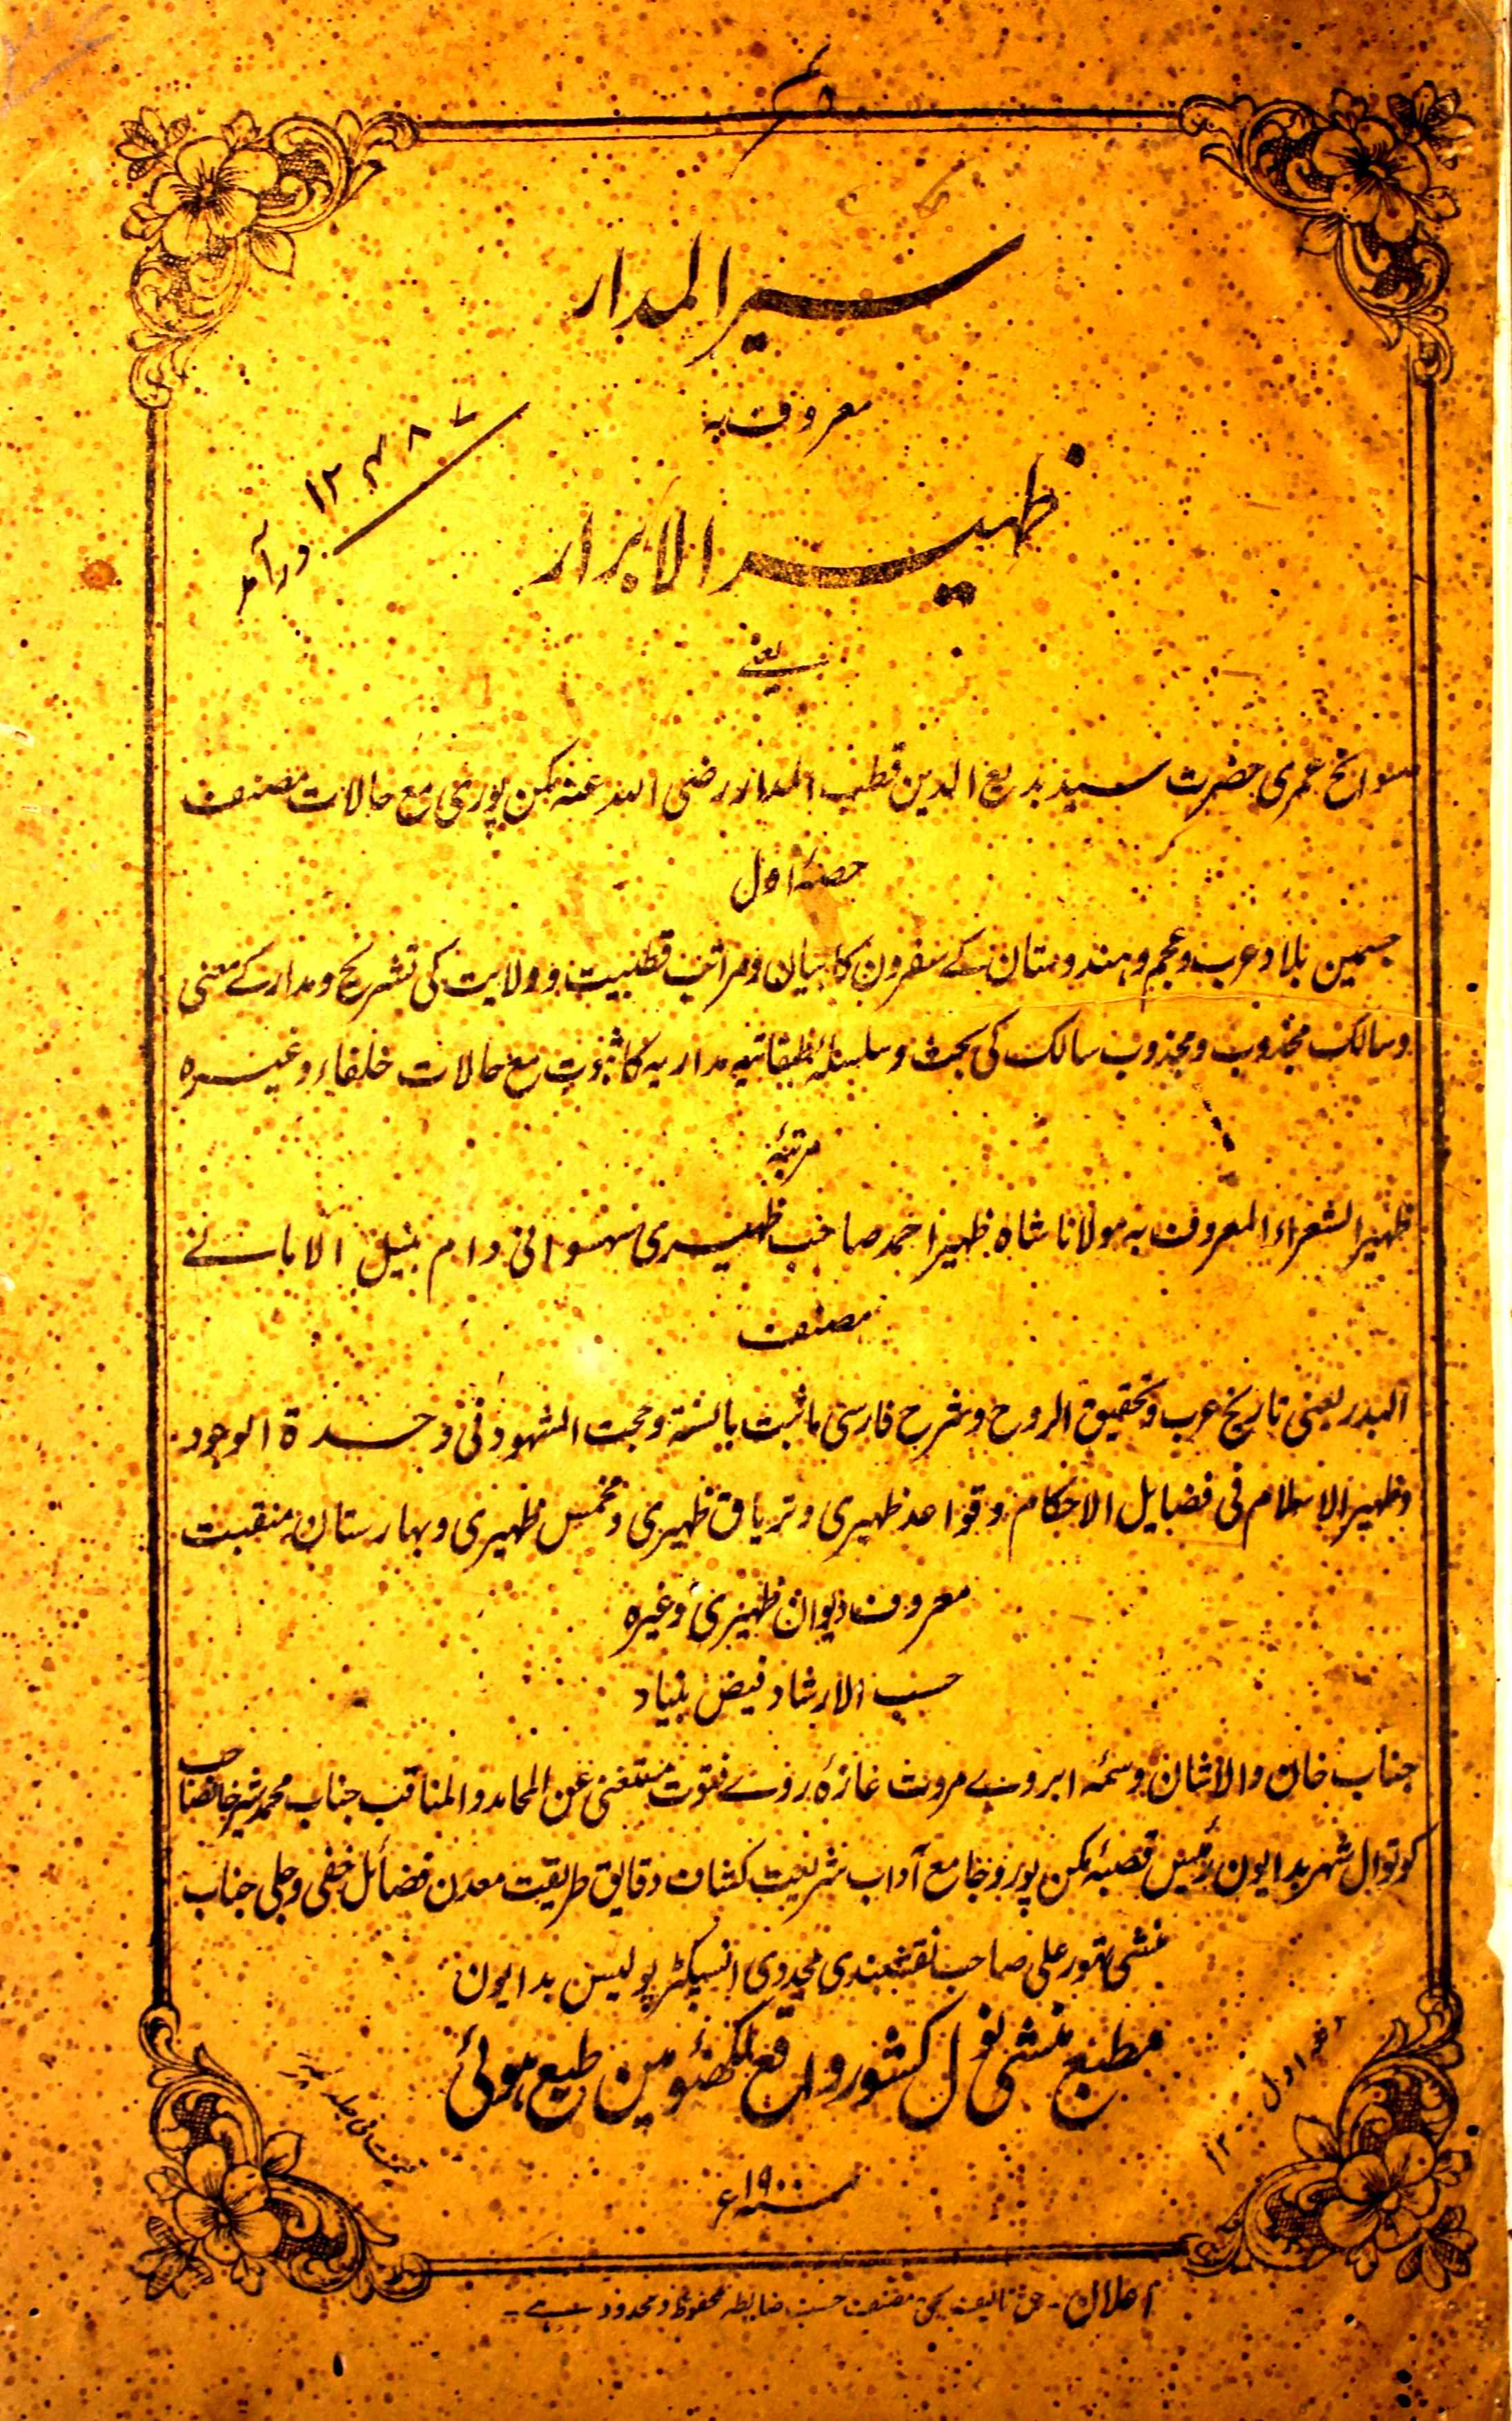 سیر المدار
معروف بہ
ظہیر الابرار
یعنے
سوانح عمری حضرت سید بدیع الدین قطب المدار رضی اللہ عنہ مکن پوری مع حالات مصنف
حصہٴ اول
جسمین بلاد عرب و عجم و ہندوستان کے سفرون کا بیان و مراتب قطبیت و ولایت کی تشریح و مدار کے معنی
و سالک مجذوب و مجذوب سالک کی بحث و سلسلہٴ طبقاتیہ مداریہ کا ثبوت مع حالات خلفاء وغیرہ
مرتبہٴ
ظہیر الشعراء المعروف بہ مولانا شاہ ظہیر احمد صاحب ظہیری سہسوانی دام بنیل الامانے
مصنف
البدر یعنی تاریخ عرب و تحقیق الروح و شرح فارسی ما ثبت بالسنۃ و حجت الشہود فی وحدۃ الوجود
و ظہیر الاسلام فی فضایل الاحکام و قواعد ظہیری و تریاق ظہیری و مخمس ظہیری و بہارستان منقبت
معروف دیوان ظہیری وغیرہ
حسب الارشاد فیض بنیاد
جناب خان والاشان وسمہٴ ابروے مروت غازہٴ روے فتوت مستغنی عن المحامد والمناقب جناب محمد شیر خانصاحب
کوتوال شہر بدایون رئیس قصبہٴ مکن پور و جامع آداب شریعت کشاف دقایق طریقت معدن فضائل خفی و جلی جناب
منشی تہور علی صاحب نقشبندی مجددی انسپکٹر پولیس بدایون
مطبع منشی نول کشور واقع لکھنؤ مین طبع ہوئی
سنہ ۱۹۰۰ع
اعلان۔ حق تالیف بحق مصنف حسب ضابطہ محفوظ و محدود ہے۔